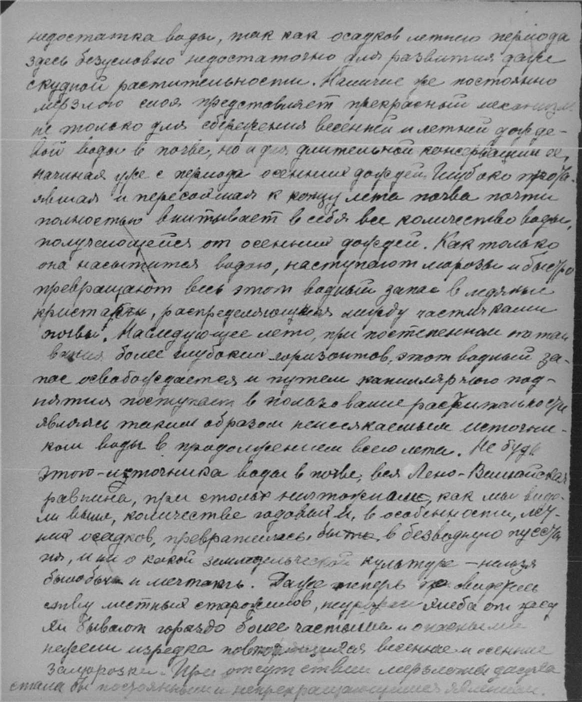 недостатка воды, так как осадков летнего периода
здесь безусловно недостаточно для развития даже
скудной растительности. Наличие же постоянно
мерзлого слоя представляет прекрасный механизм
не только для сбережения весенней и летней дожде-
вой воды в почве, но и для длительной консервации ее,
начиная уже с периода осенних дождей. Глубоко протa-
явшая и пересохшая к концу лета почва почти
полностью впитывает в себя все количество воды,
получающейся от осенних дождей. Как только
она насытится водою, наступают морозы и быстро
превращают весь этот водный запас в ледяные
кристаллы, распределяющиеся между частичками
почвы. На следующее лето, при постепенном оттаи
вании более глубоких горизонтов, этот водный за-
пас освобождается и путем капиллярного под-
нятия поступает в пользование растительности
являясь таким образом неиссякаемым источни-
ком воды в продолжении всего лета. Не будь
этого источника воды в почве, вся Лено-Вилюйская
равнина, при столь ничтожных, как мы виде-
ли выше, количестве годовых и, в особенности, лет-
них осадков, превратилась бы в безводную пусты
ню, и ни о какой земледельческой культуре нельзя
было бы и мечтать. Даже теперь по свидетель
ству местных старожилов, неурожаи хлеба от засу
хи бывают гораздо более частыми и опасными
нежели изредка повторяющиеся весенние и осенние
заморозки. При отсутствии мерзлоты засуха
стала бы постоянным и непрекращающимся явлением.